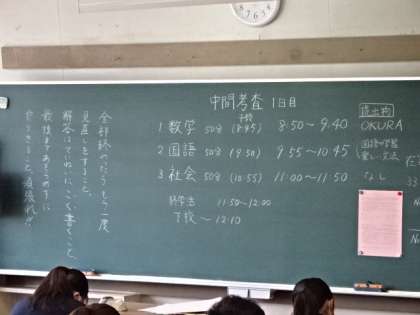 中間考査 1日目
予鈴
1 数学 50分 (8:45) 8:50〜9:40
2 国語 50分 (9:50) 9:55〜10:45
3 社会 50分 (10:55) 11:00〜11:50
終学活 11:50〜12:00
下校 〜12:10
提出物
OKURA
国語の学習
なし
全部終わったらもう一度
見直しをすること。
解答はていねいにこく書くこと。
最後まであきらめずに
やりきること。頑張れ!!